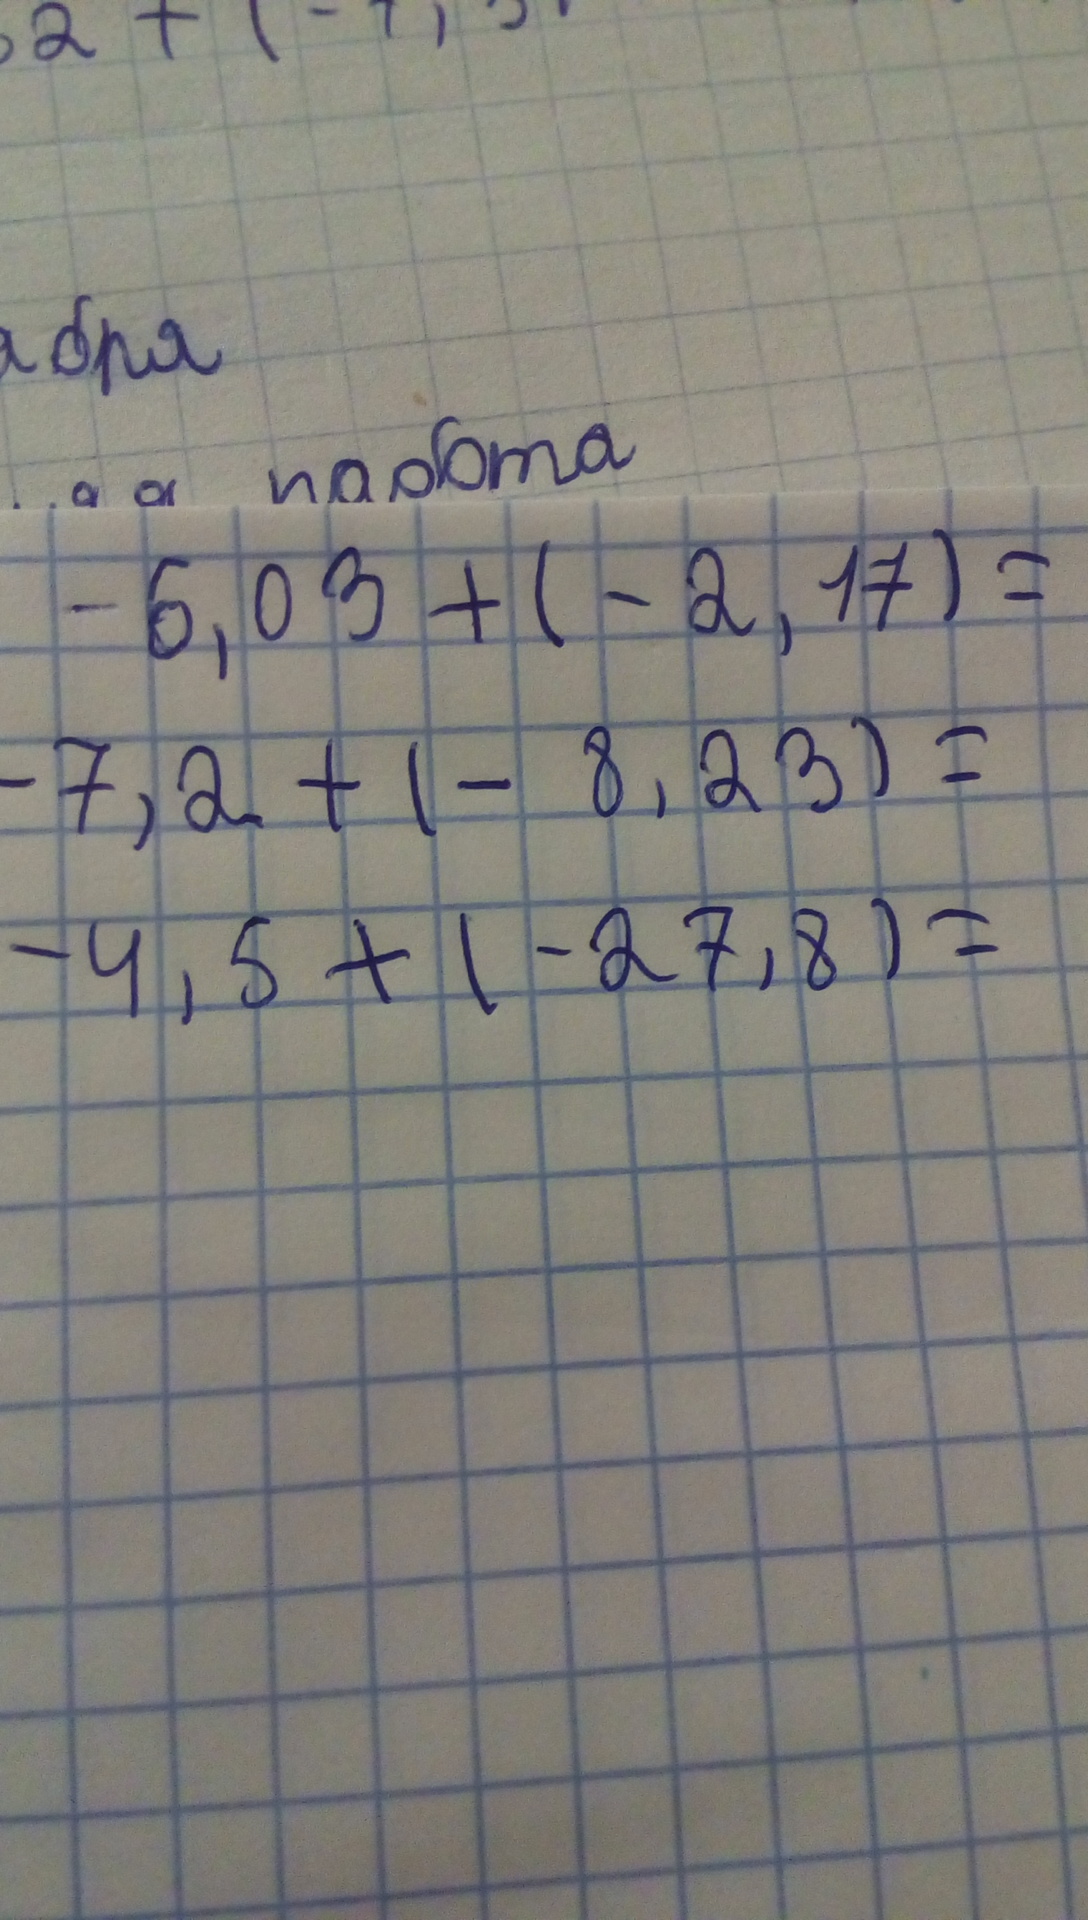 2 + (-
абря
работа
-6,03 + (-2,17) =
-7,2 + (- 8,23) =
-4,5 + (-27,8) =